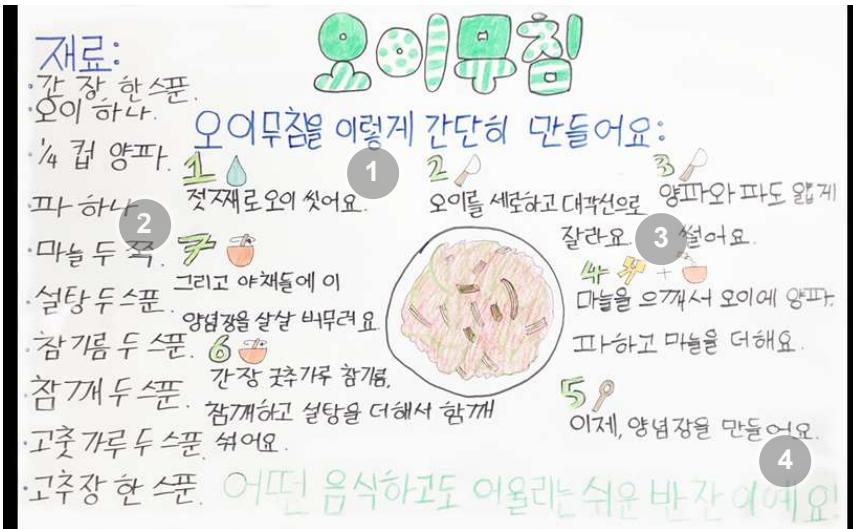 오이무침
재료:
·간장 한 스푼.
·오이 하나.
·¼ 컵 양파.
·파 하나
·마늘 두 쪽.
·설탕 두 스푼.
·참기름 두 스푼.
·참깨 두 스푼.
·고춧가루 두 스푼.
·고추장 한 스푼.
오이무침을 이렇게 간단히 만들어요:
1
젓째로 오이 씻어요.
2
오이를 세로하고 대각선으로
잘라요.
3
양파와 파도 얇게
썰어요.
4
마늘을 으깨서 오이에 양파.
파하고 마늘을 더해요.
5
이제, 양념장을 만들어요.
6
간장 곳추가루 참기름,
참깨하고 설탕을 더해서 함께
섞어요.
7
그리고 야채들에 이
양념장을 살살 버무려요.
어떤 음식하고도 어울리는 쉬운 반찬이예요!
1
2
3
4